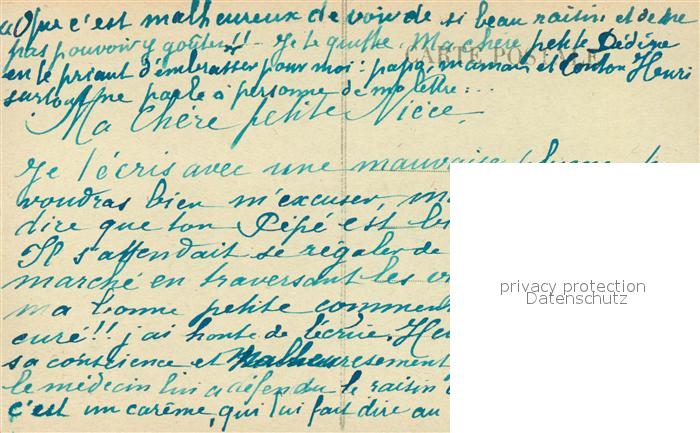 « Que c'est malheureux de voir de si beau raisin et de ne
pas pouvoir y goûter !! – Je te quitte. Ma chère petite Dédéne
CARTE POSTALE
en te priant d'embrasser pour moi : papa, maman et tonton Henri
surtout ne parle à personne de ma lettre...
Ma Chère petite Nièce,
Je t'écris avec une mauvaise
voudras bien m'excuser,
dire que ton Pépé est
Il s'attendait se régaler de
marché en traversant les
ma bonne petite comment
curé !! j'ai honte de l'écrire,
sa conscience et Malheureusement
le médecin lui a défendu le raisin
c'est un carême, qui lui fait dire au
privacy protection
Datenschutz